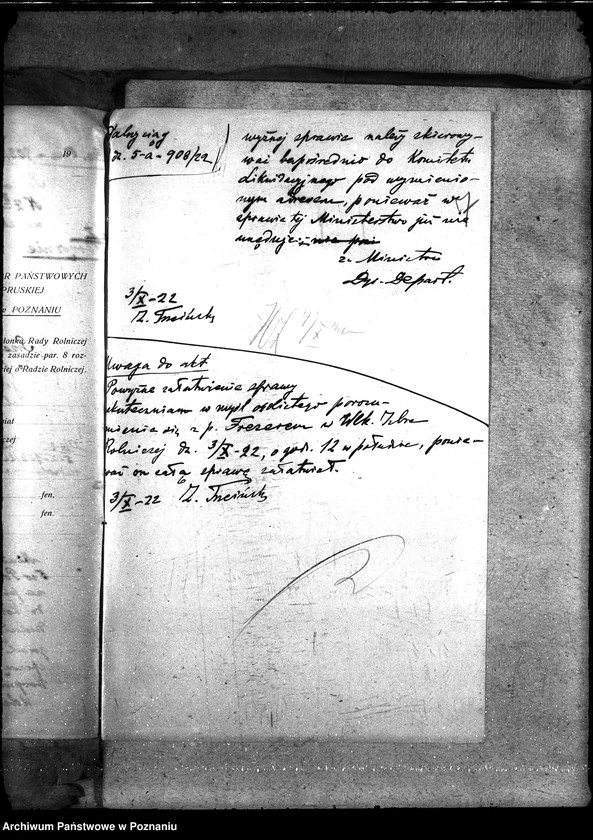 19
AR PAŃSTWOWYCH
PRUSKIEJ
POZNANIU
łonka Rady Rolniczej
zasadzie par. 8 roz-
iej o Radzie Rolniczej.
iat
czej
fen.
fen.
Dalszy ciąg
dz. 5-a-908/22
wyżej sprawie należy skierowy-
wać bezpośrednio do Komitetu
Likwidacyjnego pod wymienio-
nym adresem, ponieważ w
sprawie tej Ministerstwo już nie
urzęduje
z. Ministra
Dyr. Depart.
3/X-22
Uwaga do akt
Powyższe załatwienie sprawy
skuteczniam w myśl osobistego porozu-
mienia się z p. Frezerem w Wlk. Izbie
Rolniczej dz. 3/X-22, o godz. 12 w południe, ponie-
waż on całą sprawę załatwiał.
3/X-22
Archiwum Państwowe w Poznaniu